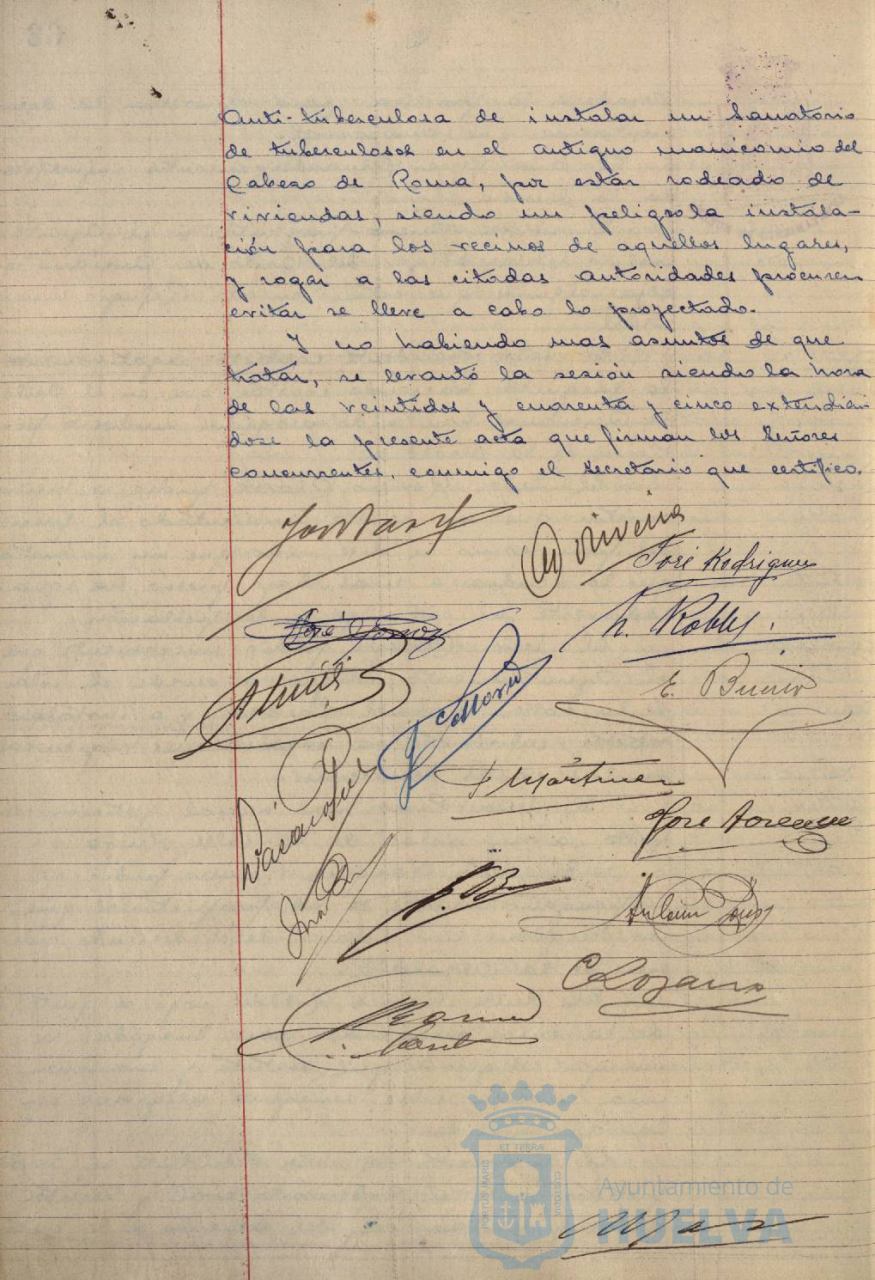 Anti-tuberculosa de instalar un Sanatorio
de tuberculosos en el antiguo manicomio del
Cabezo de Roma, por estár rodeado de
viviendas, siendo un peligro la instala-
ción para los vecinos de aquellos lugares,
y rogar a las citadas autoridades procuren
evitar se lleve a cabo lo proyectado.
Y no habiendo mas asuntos de que
tratar, se levantó la sesión siendo la hora
de las veintidos y cuarenta y cinco extendien
dose la presente acta que firman los Señores
concurrentes, conmigo el Secretario que certifico.
José Rodriguez
R. Robles.
E.
F Martinez
José
C Lozano
ET TERRÆ
PORTUS MARIS
CUSTODIA
Ayuntamiento de
HUELVA